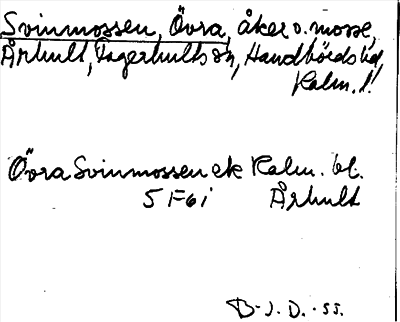 Svinmossen, Övra, åker o. mosse,
Århult, Fagerhults sn, Handbörds hd,
Kalm. l.
Övra Svinmossen ek Kalm. bl.
5 F6i Århult
B-J. D. -55.